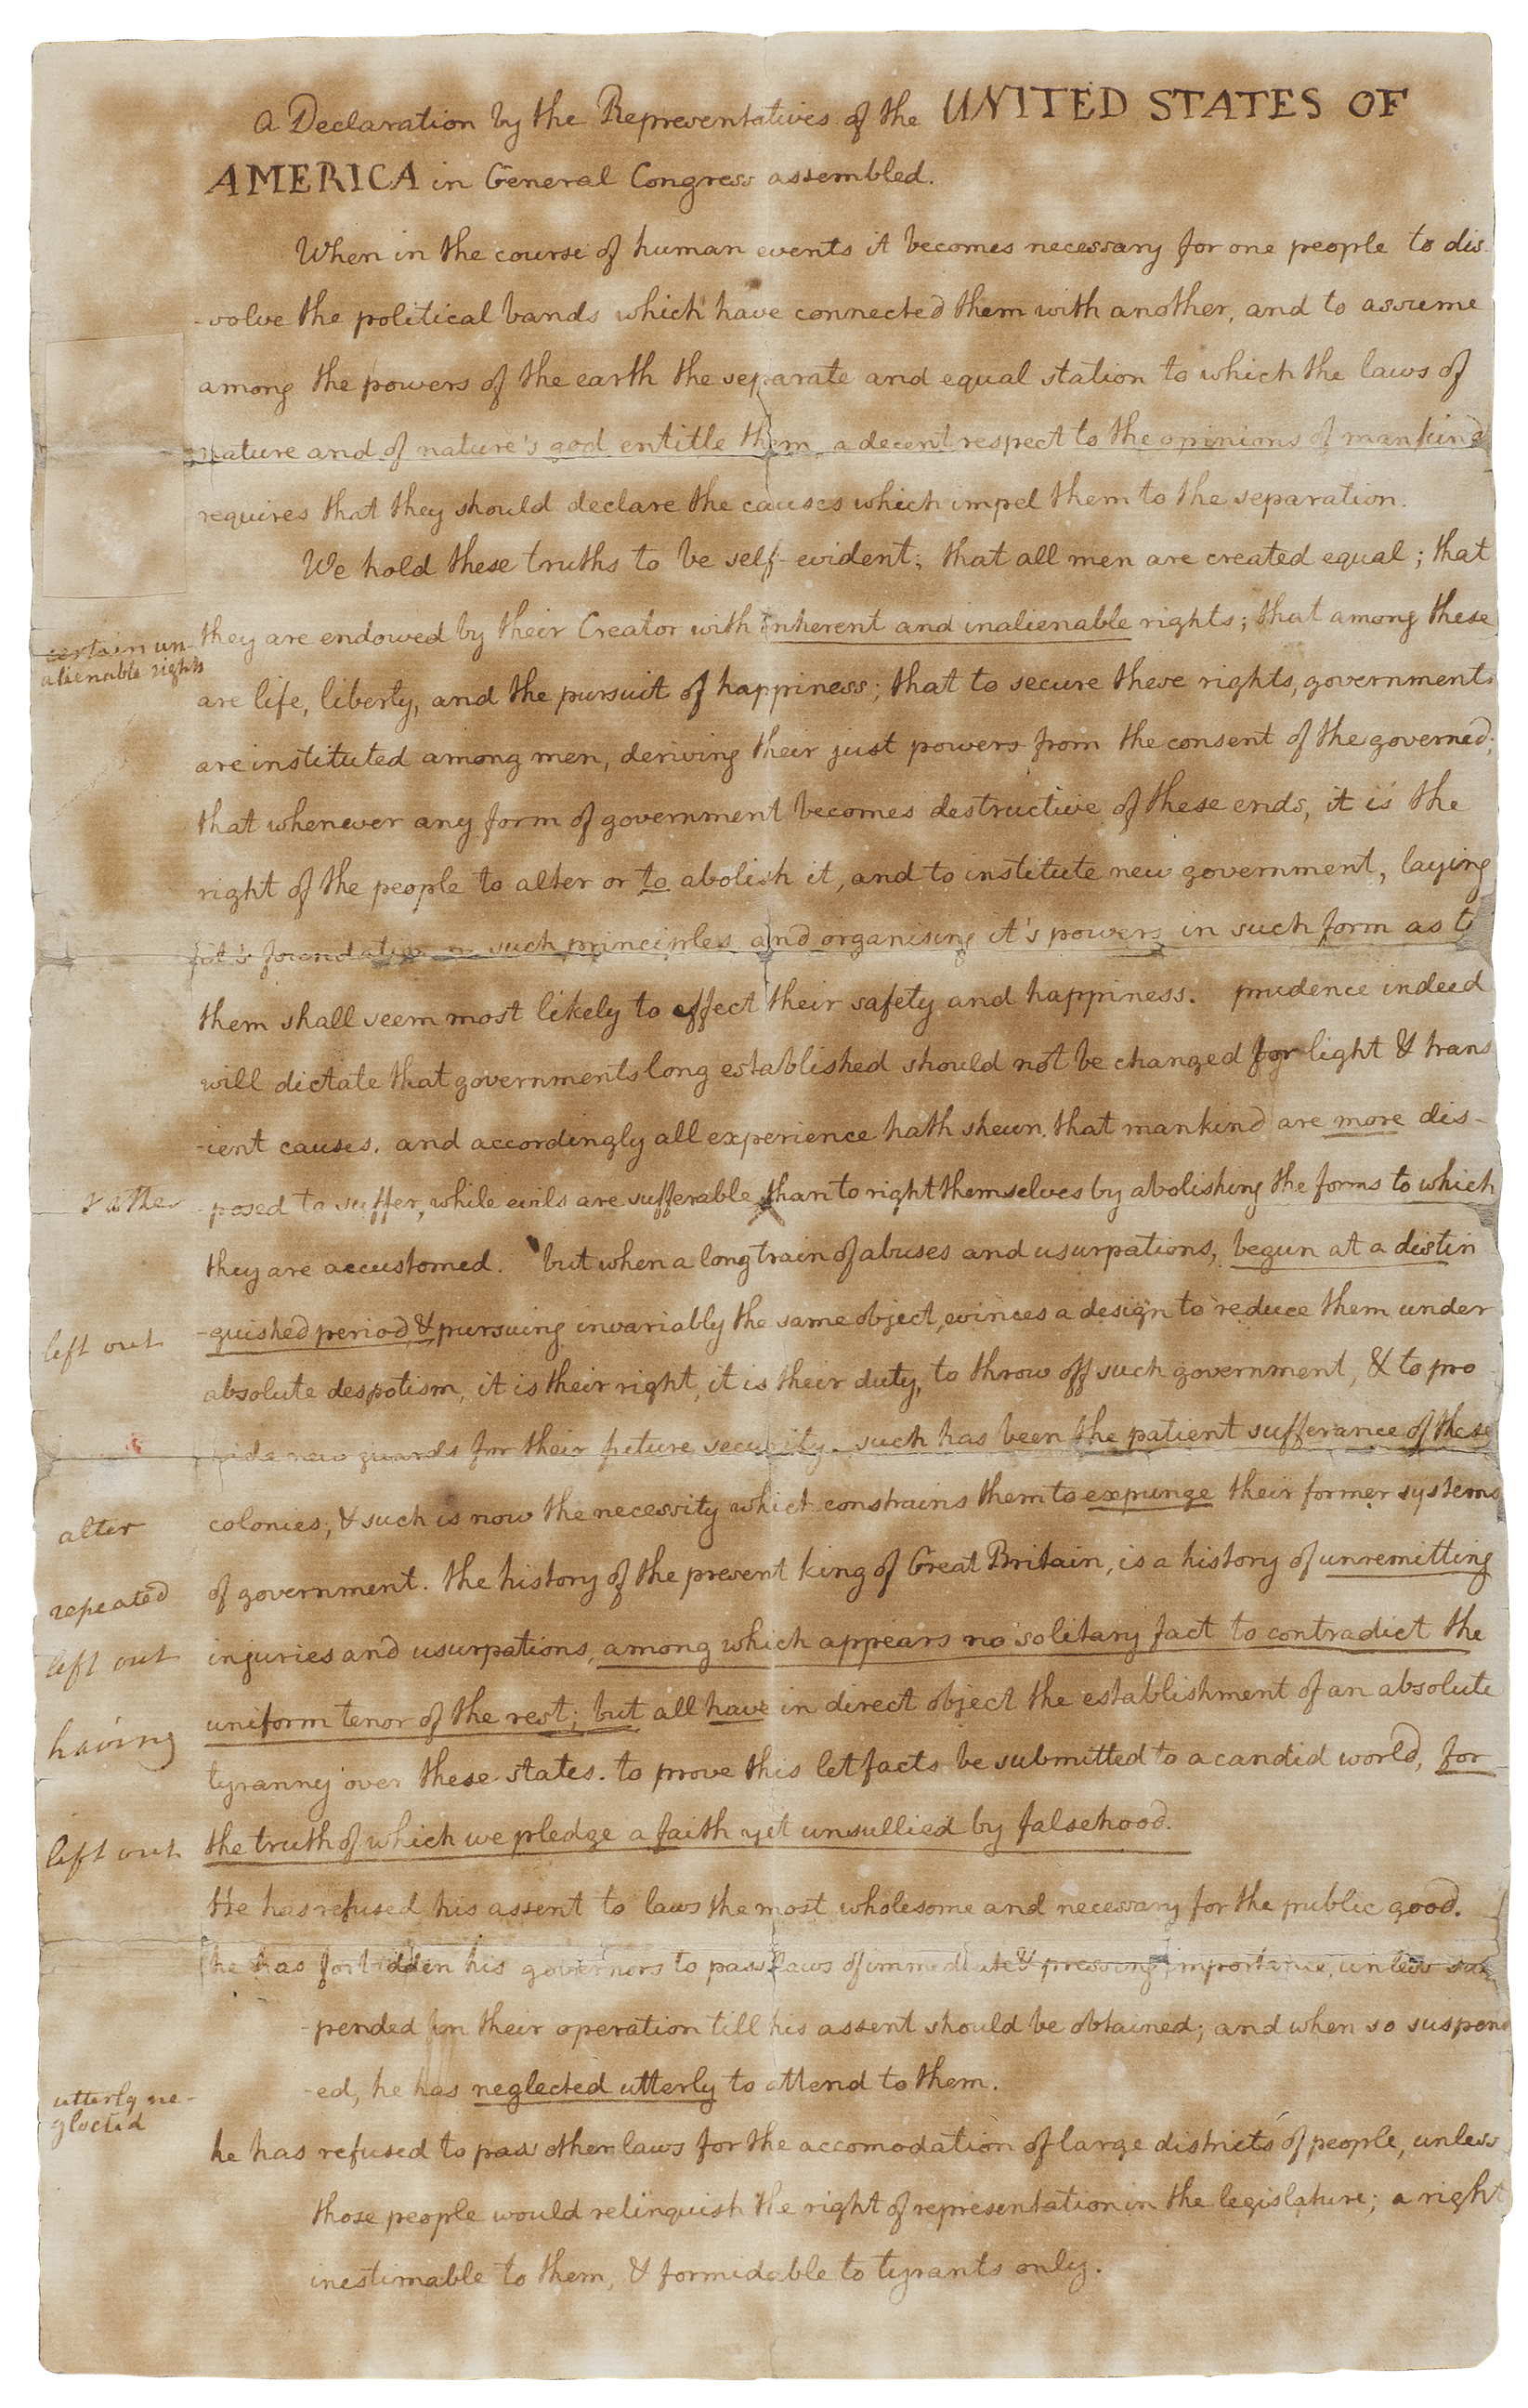 a Declaration by the Representatives of the UNITED STATES OF
AMERICA in General Congress assembled.
When in the course of human events it becomes necessary for one people to dis-
-solve the political bands which have connected them with another, and to assume
among the powers of the earth the separate and equal station to which the laws of
nature and of nature's god entitle them, a decent respect to the opinions of mankind
requires that they should declare the causes which impel them to the separation.
We hold these truths to be self-evident; that all men are created equal; that
they are endowed by their Creator with inherent and inalienable rights; that among these
certain un-
alienable rights
are life, liberty, and the pursuit of happiness; that to secure these rights, governments
are instituted among men, deriving their just powers from the consent of the governed;
that whenever any form of government becomes destructive of these ends, it is the
right of the people to alter or to abolish it, and to institute new government, laying
it's foundation on such principles and organising it's powers in such form as to
them shall seem most likely to effect their safety and happiness. prudence indeed
will dictate that governments long established should not be changed for light & trans
-ient causes. and accordingly all experience hath shewn that mankind are more dis-
rather
-posed to suffer, while evils are sufferable, than to right themselves by abolishing the forms to which
they are accustomed. but when a long train of abuses and usurpations, begun at a distin
left out
-guished period & pursuing invariably the same object, evinces a design to reduce them under
absolute despotism, it is their right, it is their duty, to throw off such government, & to pro
vide new guards for their future security. such has been the patient sufferance of these
alter
colonies; & such is now the necessity which constrains them to expunge their former systems
repeated
of government. the history of the present king of Great Britain, is a history of unremitting
left out
injuries and usurpations, among which appears no solitary fact to contradict the
having
uniform tenor of the rest; but all have in direct object the establishment of an absolute
tyranny over these states. to prove this let facts be submitted to a candid world, for
left out
the truth of which we pledge a faith yet unsullied by falsehood.
He has refused his assent to laws the most wholesome and necessary for the public good.
he has forbidden his governors to pass laws of immediate & pressing importance, unless sus
-pended in their operation till his assent should be obtained; and when so suspend
utterly ne-
glected
-ed, he has neglected utterly to attend to them.
he has refused to pass other laws for the accomodation of large districts of people, unless
those people would relinquish the right of representation in the legislature; a right
inestimable to them, & formidable to tyrants only.